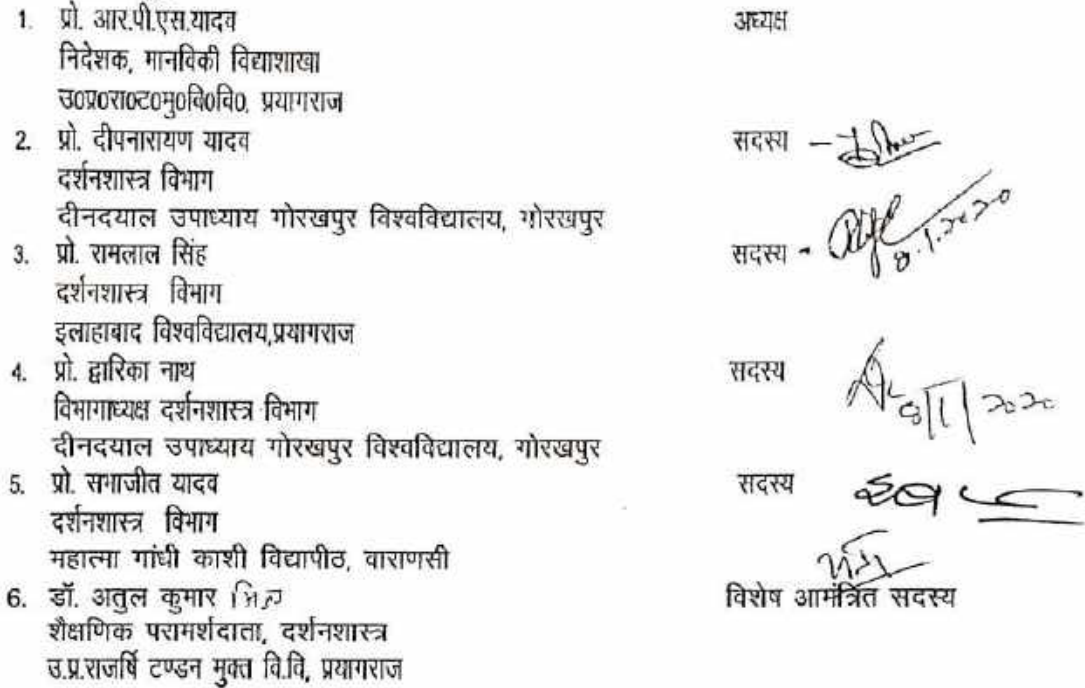 1. प्रो. आर.पी.एस.यादव अध्यक्ष
निदेशक, मानविकी विद्याशाखा
उ0प्र0रा0ट0मु0वि0वि0, प्रयागराज
2. प्रो. दीपनारायण यादव सदस्य –
दर्शनशास्त्र विभाग
दीनदयाल उपाध्याय गोरखपुर विश्वविद्यालय, गोरखपुर
3. प्रो. रामलाल सिंह सदस्य - 8.1.2020
दर्शनशास्त्र विभाग
इलाहाबाद विश्वविद्यालय,प्रयागराज
4. प्रो. द्वारिका नाथ सदस्य 8/1/2020
विभागाध्यक्ष दर्शनशास्त्र विभाग
दीनदयाल उपाध्याय गोरखपुर विश्वविद्यालय, गोरखपुर
5. प्रो. सभाजीत यादव सदस्य
दर्शनशास्त्र विभाग
महात्मा गांधी काशी विद्यापीठ, वाराणसी
6. डॉ. अतुल कुमार विशेष आमंत्रित सदस्य
शैक्षणिक परामर्शदाता, दर्शनशास्त्र
उ.प्र.राजर्षि टण्डन मुक्त वि.वि, प्रयागराज